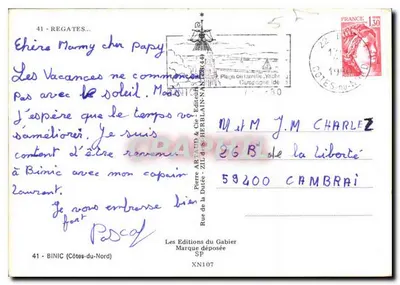 41 - REGATES...
Chère Mamy cher Papy
Les Vacances ne commencent
Pas avec le soleil. Mais
j'espère que le temps va
s'améliorer. Je suis
content d'être revenu
à Binic avec mon copain
Laurent.
Je vous embrasse bien
fort
Pascal
41 - BINIC (Côtes-du-Nord)
Rue de la Dutée - ZIL de ST HERBLAIN-NANTES
Les Editions du Gabier
Marque déposée
SP
XN107
FRANCE
1,30
M et M J.M CHARLEZ
26 B de la Liberté
59400 CAMBRAI